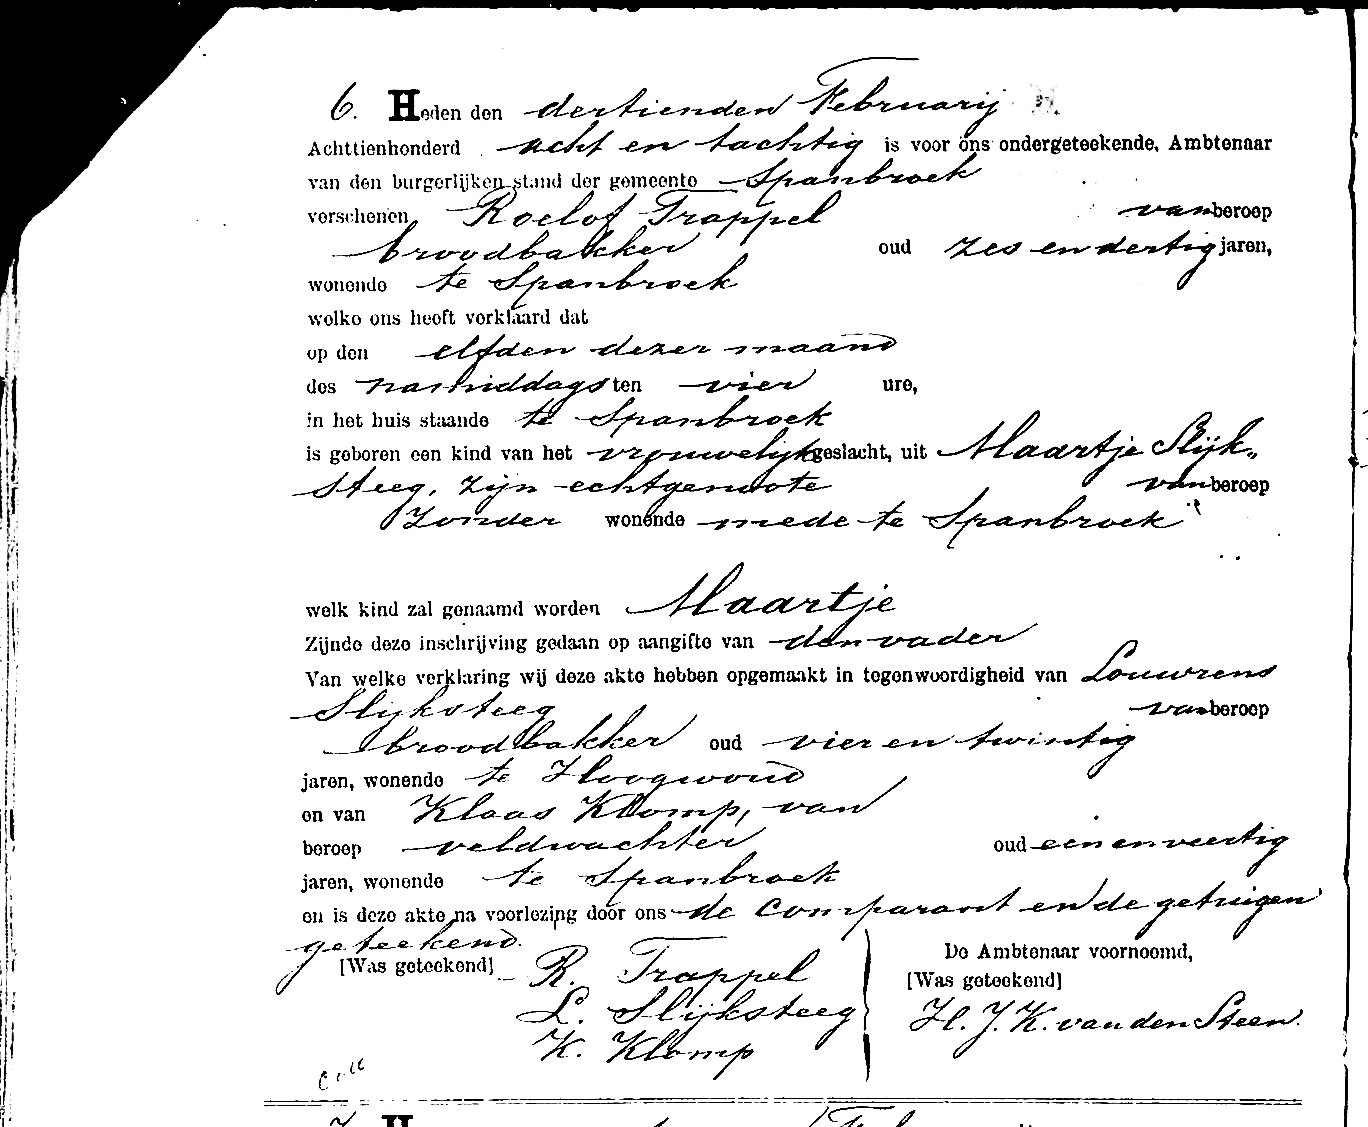 6. Heden den dertienden Februarij
Achttienhonderd acht en tachtig is voor ons ondergeteekende, Ambtenaar
van den burgerlijken stand der gemeente Spanbroek
verschenen Roelof Trappel van beroep
broodbakker oud zes en dertig jaren,
wonende te Spanbroek
welke ons heeft verklaard dat
op den elfden dezer maand
des namiddags ten vier ure,
in het huis staande te Spanbroek
is geboren een kind van het vrouwelijk geslacht, uit Maartje Slijk„
steeg, zijn echtgenoote van beroep
zonder wonende mede te Spanbroek
welk kind zal genaamd worden Maartje
Zijnde deze inschrijving gedaan op aangifte van den vader
Van welke verklaring wij deze akte hebben opgemaakt in tegenwoordigheid van Louwrens
Slijksteeg van beroep
broodbakker oud vier en twintig
jaren, wonende te Hoogwoud
en van Klaas Klomp, van
beroep veldwachter oud een en veertig
jaren, wonende te Spanbroek
en is deze akte na voorlezing door ons de comparant en de getuigen
geteekend.
[Was geteekend] R. Trappel
L. Slijksteeg
K. Klomp
De Ambtenaar voornoemd,
[Was geteekend]
H. J. K. van den Steen.